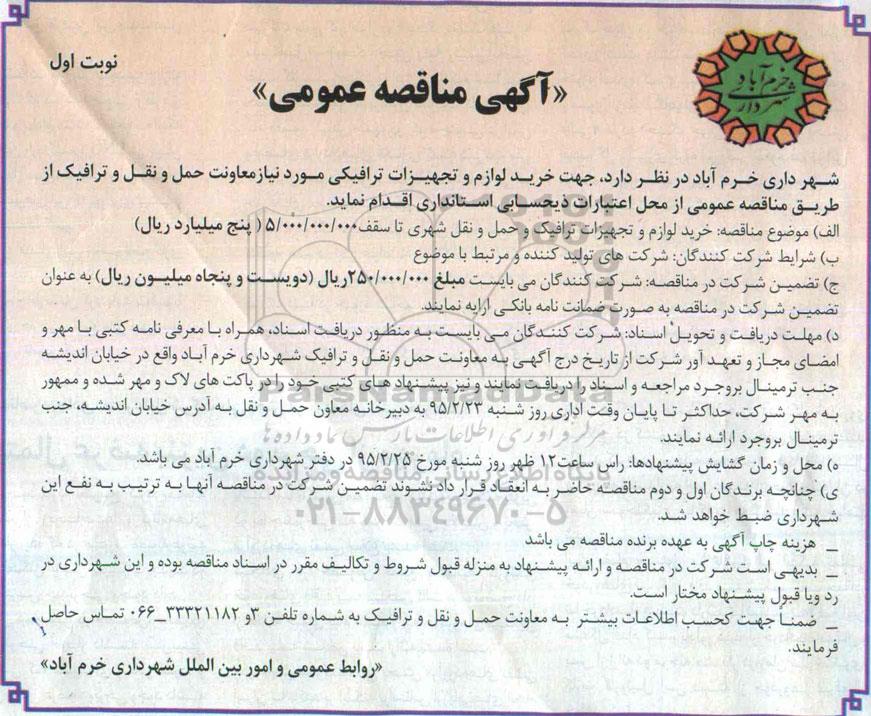 نوبت اول
خرم آباد
شهرداری
«آگهی مناقصه عمومی»
شهر داری خرم آباد در نظر دارد، جهت خرید لوازم و تجهیزات ترافیکی مورد نیازمعاونت حمل و نقل و ترافیک از
طریق مناقصه عمومی از محل اعتبارات ذیحسابی استانداری اقدام نماید.
الف) موضوع مناقصه: خرید لوازم و تجهیزات ترافیک و حمل و نقل شهری تا سقف۵/۰۰۰/۰۰۰/۰۰۰ ( پنج میلیارد ریال)
ب) شرایط شرکت کنندگان: شرکت های تولید کننده و مرتبط با موضوع
ج) تضمین شرکت در مناقصه: شرکت کنندگان می بایست مبلغ ۲۵۰/۰۰۰/۰۰۰ریال (دویست و پنجاه میلیون ریال) به عنوان
تضمین شرکت در مناقصه به صورت ضمانت نامه بانکی ارایه نمایند.
د) مهلت دریافت و تحویل اسناد: شرکت کنندگان می بایست به منظور دریافت اسناد، همراه با معرفی نامه کتبی با مهر و
امضای مجاز و تعهد آور شرکت از تاریخ درج آگهی به معاونت حمل و نقل و ترافیک شهرداری خرم آباد واقع در خیابان اندیشه
جنب ترمینال بروجرد مراجعه و اسناد را دریافت نمایند و نیز پیشنهاد های کتبی خود را در پاکت های لاک و مهر شده و ممهور
به مهر شرکت، حداکثر تا پایان وقت اداری روز شنبه ۹۵/۲/۲۳ به دبیرخانه معاون حمل و نقل به آدرس خیابان اندیشه، جنب
ترمینال بروجرد ارائه نمایند.
ه) محل و زمان گشایش پیشنهادها: راس ساعت۱۲ ظهر روز شنبه مورخ ۹۵/۲/۲۵ در دفتر شهرداری خرم آباد می باشد.
ی) چنانچه برندگان اول و دوم مناقصه حاضر به انعقاد قرار داد نشوند تضمین شرکت در مناقصه آنها به ترتیب به نفع این
شهرداری ضبط خواهد شد.
_ هزینه چاپ آگهی به عهده برنده مناقصه می باشد
_ بدیهی است شرکت در مناقصه و ارائه پیشنهاد به منزله قبول شروط و تکالیف مقرر در اسناد مناقصه بوده و این شهرداری در
رد ویا قبول پیشنهاد مختار است.
_ ضمناً جهت کحسب اطلاعات بیشتر به معاونت حمل و نقل و ترافیک به شماره تلفن ۳و ۳۳۳۲۱۱۸۲_۰۶۶ تماس حاصل
فرمایند.
«روابط عمومی و امور بین الملل شهرداری خرم آباد»
ParsNamadData
مرکز فرآوری اطلاعات پارس نماد داده ها
پایگاه اطلاع رسانی مناقصه و مزایده
۰۲۱-۸۸۳۴۹۶۷۰-۵